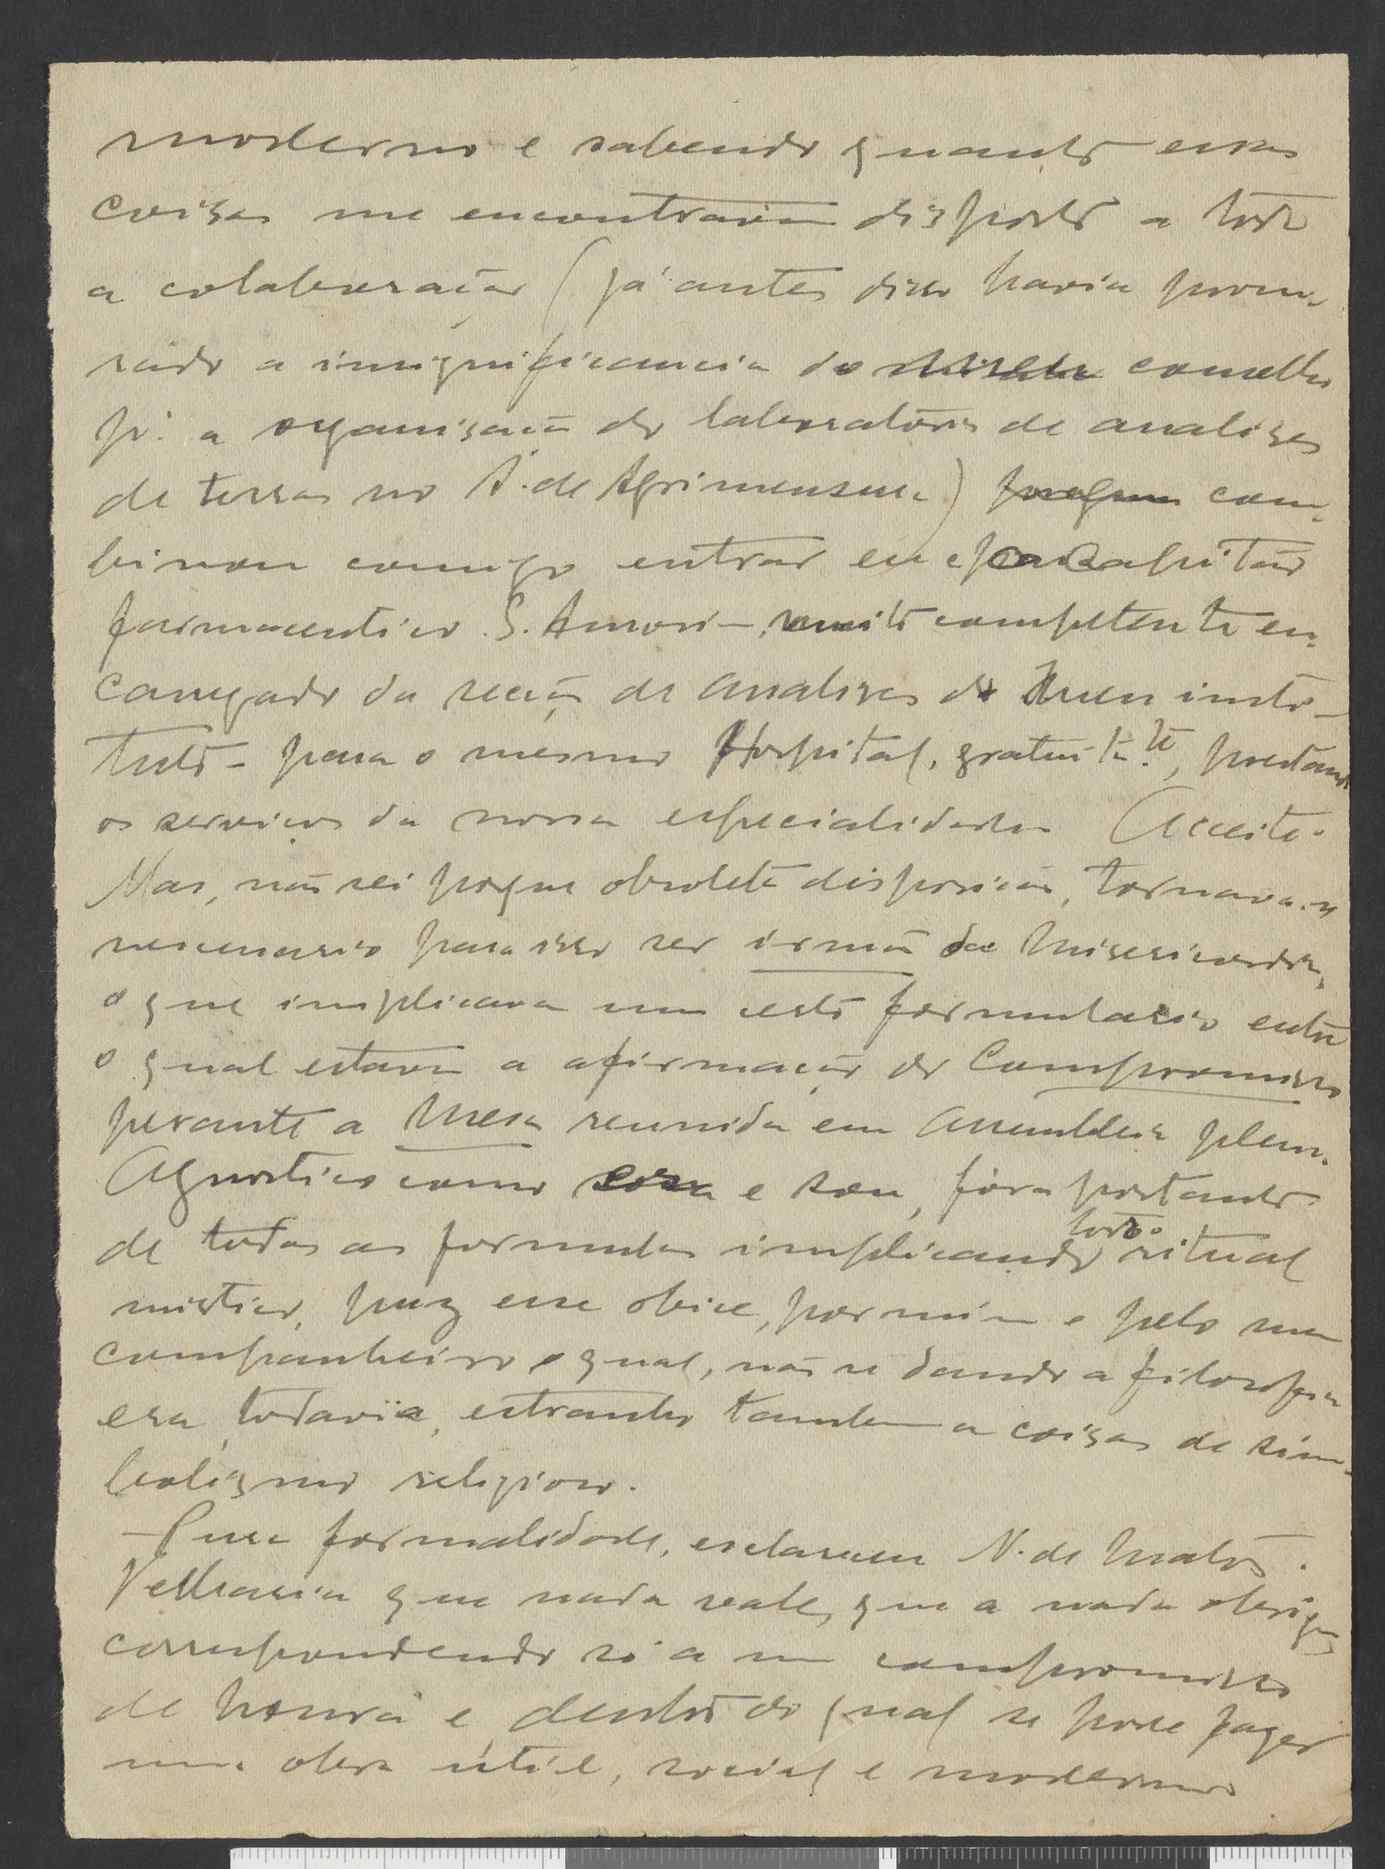 moderno e sabendo quanto essas
coisas me encontravam disposto a toda
a colaboração (já antes disso havia procu-
rado a insignificancia do conselho
pª. a organisação do laboratorio de analises
de terras no S. de Agrimensura) com-
binou comigo entrar eu e o capitão
farmaceutico S. Amorim, muito competente en-
carregado da secção de analises do meu insti-
tuto - para o mesmo Hospital, gratuitamte, prestando
os serviços da nossa especialidade. Acceitei.
Mas, não sei porque obsoleta disposição, tornava-se
necessario para isso ser irmão da Misericordia,
o que implicava um certo formulario entre
o qual estava a afirmação do Compromisso
perante a Mesa reunida em Assembleia plena.
Agnostico como era e sou, fóra portanto
de todas as formulas implicando todo o ritual
mistico, puz esse obice, por mim e pelo meu
companheiro o qual, não se dando a filosofia
era, todavia, estranho tambem a coisas de sim-
bolismo religioso.
- Pura formalidade, esclareceu N. de Matos.
Velharia que nada vale, que a nada obriga,
correspondendo só a um compromisso
de honra e dentro do qual se pode fazer
uma obra util, social e moderna